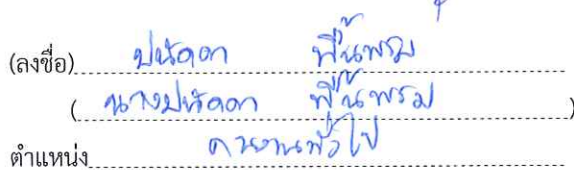 (ลงชื่อ) ปนัดดา พื้นพรม
( นางปนัดดา พื้นพรม )
ตำแหน่ง คนงานทั่วไป